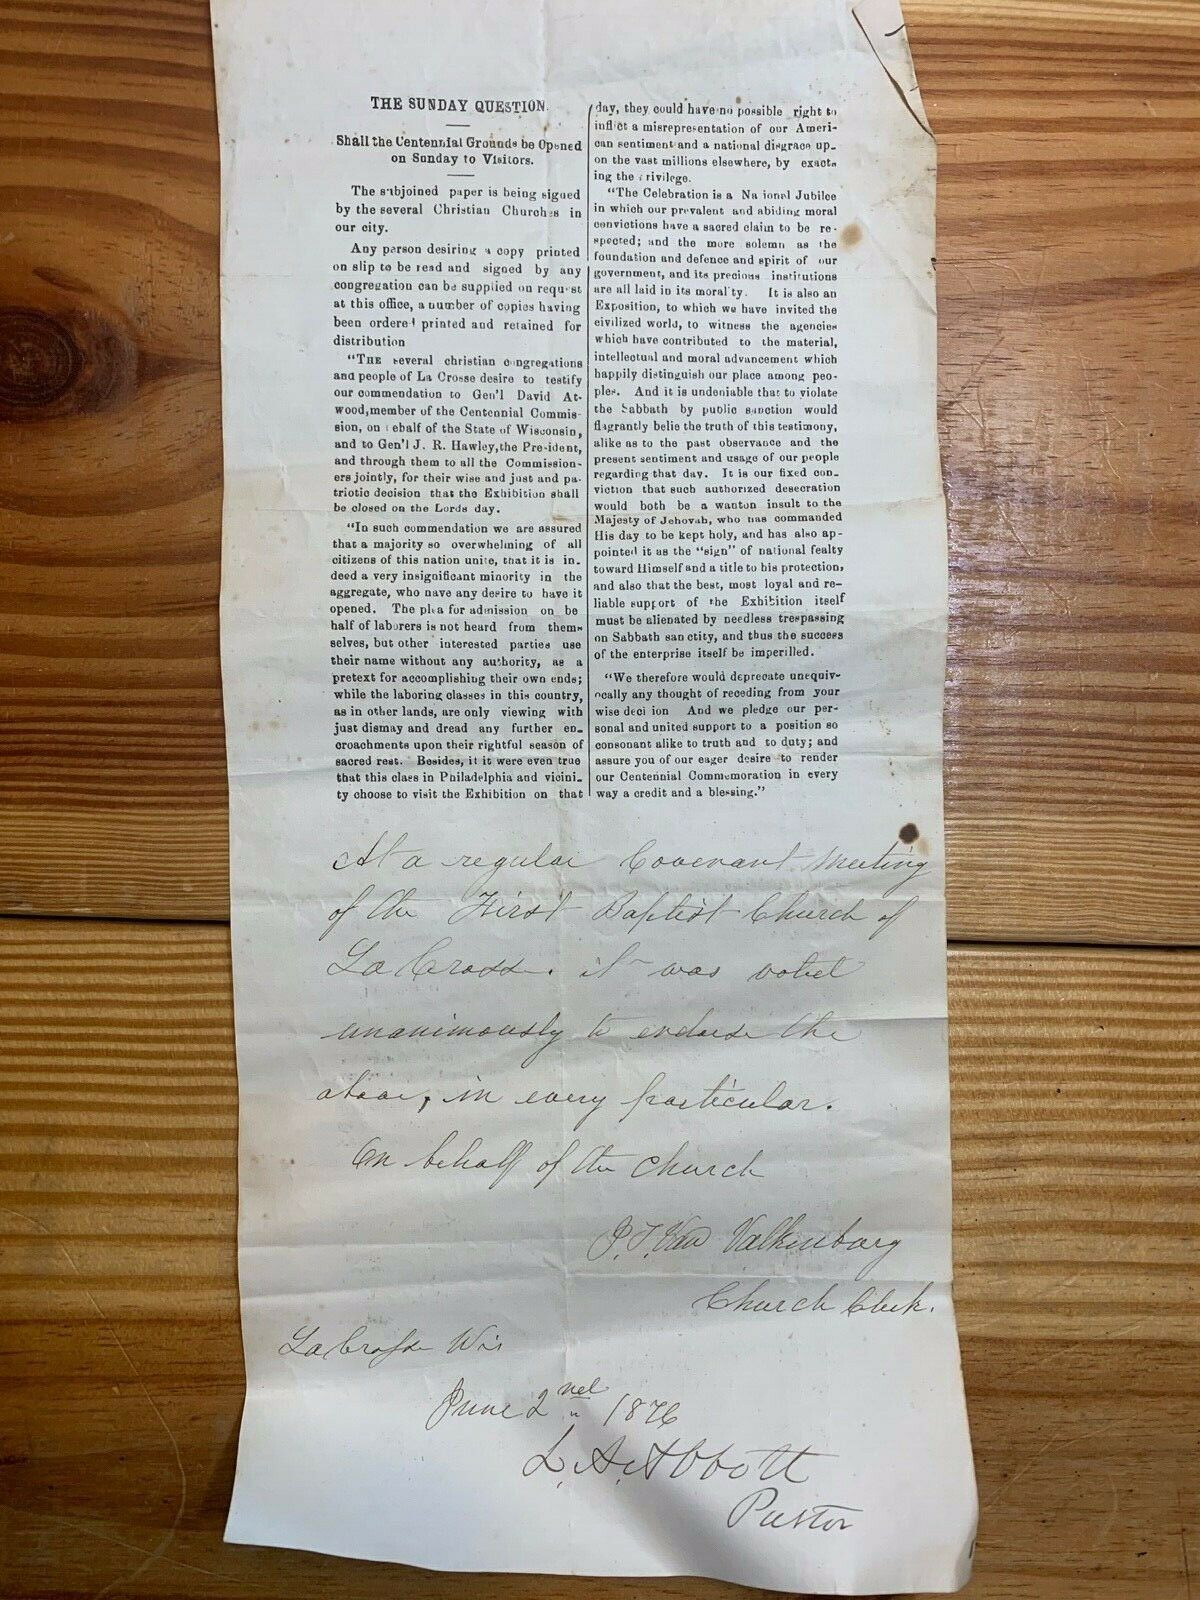 THE SUNDAY QUESTION.
Shall the Centennial Grounds be Opened
on Sunday to Visitors.
The subjoined paper is being signed
by the several Christian Churches in
our city.
Any person desiring a copy printed
on slip to be read and signed by any
congregation can be supplied on request
at this office, a number of copies having
been ordered printed and retained for
distribution
"THE several christian congregations
and people of La Crosse desire to testify
our commendation to Gen'l David At-
wood, member of the Centennial Commis-
sion, on behalf of the State of Wisconsin,
and to Gen'l J. R. Hawley, the President,
and through them to all the Commission-
ers jointly, for their wise and just and pa-
triotic decision that the Exhibition shall
be closed on the Lords day.
"In such commendation we are assured
that a majority so overwhelming of all
citizens of this nation unite, that it is in-
deed a very insignificant minority in the
aggregate, who have any desire to have it
opened. The plea for admission on be
half of laborers is not heard from them-
selves, but other interested parties use
their name without any authority, as a
pretext for accomplishing their own ends;
while the laboring classes in this country,
as in other lands, are only viewing with
just dismay and dread any further en-
croachments upon their rightful season of
sacred rest. Besides, if it were even true
that this class in Philadelphia and vicini-
ty choose to visit the Exhibition on that
day, they could have no possible right to
inflict a misrepresentation of our Ameri-
can sentiment and a national disgrace up-
on the vast millions elsewhere, by exact-
ing the rivilege.
"The Celebration is a Na ional Jubilee
in which our prevalent and abiding moral
convictions have a sacred claim to be re-
spected; and the more solemn as the
foundation and defence and spirit of our
government, and its precious institutions
are all laid in its morality. It is also an
Exposition, to which we have invited the
civilized world, to witness the agencies
which have contributed to the material,
intellectual and moral advancement which
happily distinguish our place among peo-
ples. And it is undeniable that to violate
the Sabbath by public sanction would
flagrantly belie the truth of this testimony,
alike as to the past observance and the
present sentiment and usage of our people
regarding that day. It is our fixed con-
viction that such authorized desecration
would both be a wanton insult to the
Majesty of Jehovah, who has commanded
His day to be kept holy, and has also ap-
pointed it as the "sign" of national fealty
toward Himself and a title to his protection,
and also that the best, most loyal and re-
liable support of the Exhibition itself
must be alienated by needless trespassing
on Sabbath sanctity, and thus the success
of the enterprise itself be imperilled.
"We therefore would deprecate unequiv-
ocally any thought of receding from your
wise deci ion And we pledge our per-
sonal and united support to a position so
consonant alike to truth and to duty; and
assure you of our eager desire to render
our Centennial Commemoration in every
way a credit and a blessing."
At a regular Covenant Meeting
of the First Baptist Church of
La Crosse. it was voted
unanimously to endorse the
above, in every particular.
On behalf of the church
P. T. Van Valkenburg
Church Clerk.
La Crosse Wis
June 2nd 1876
L. A. Abbott
Pastor